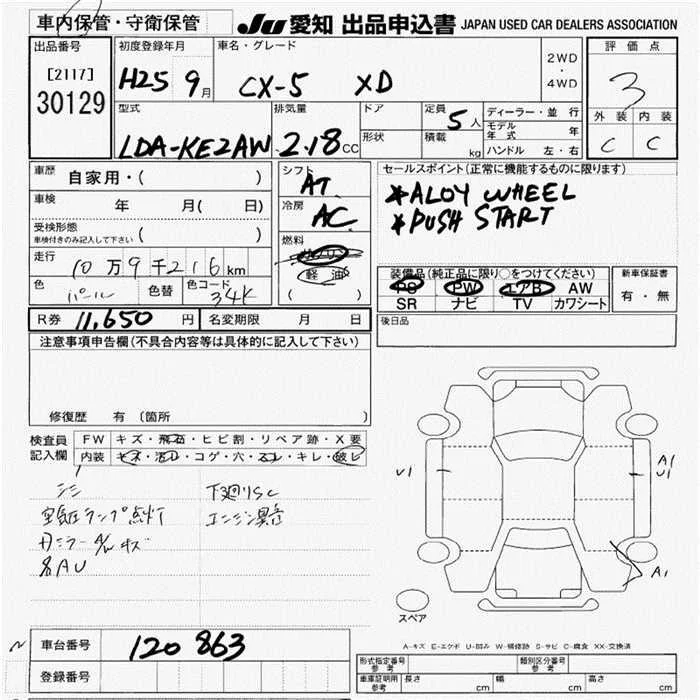 車内保管・守衛保管
JU 愛知 出品申込書 JAPAN USED CAR DEALERS ASSOCIATION
出品番号
[2117]
30129
初度登録年月
H25 9月
車名・グレード
CX-5 XD
2WD
・
4WD
評価点
3
外装 内装
C C
型式
LDA-KE2AW
排気量
2.18cc
ドア
形状
定員
5人
積載
kg
ディーラー・並行
モデル年式 年
ハンドル 左・右
車歴
自家用・( )
車検
年 月( 日)
受検形態
車検付きのみ記入して下さい ( )
走行
10万9千216km
色
パール
色替
色コード
34K
シフト
AT
冷房
AC
燃料
ガソリン
軽油
( )
セールスポイント(正常に機能するものに限ります)
*ALOY WHEEL
*PUSH START
装備品(純正品に限り○をつけてください)
PS PW エアB AW
SR ナビ TV カワシート
新車保証書
有・無
R券 11,650 円
名変期限 月 日
後日品
注意事項申告欄(不具合内容等は具体的に記入して下さい)
修復歴 有(箇所 )
検査員
記入欄
FW キズ・飛石・ヒビ割・リペア跡・X要
内装 キズ・汚れ・コゲ・穴・スレ・キレ・破レ
下廻りSC
空気圧ランプ点灯
エンジン異音
U1
A1
U1
A1
スペア
A-キズ E-エクボ U-凹み W-補修跡 S-サビ C-腐食 XX-交換済
車台番号
120863
登録番号
形式指定番号
参考
類別区分番号
参考
車庫証明用
参考
長さ cm
幅 cm
高さ cm